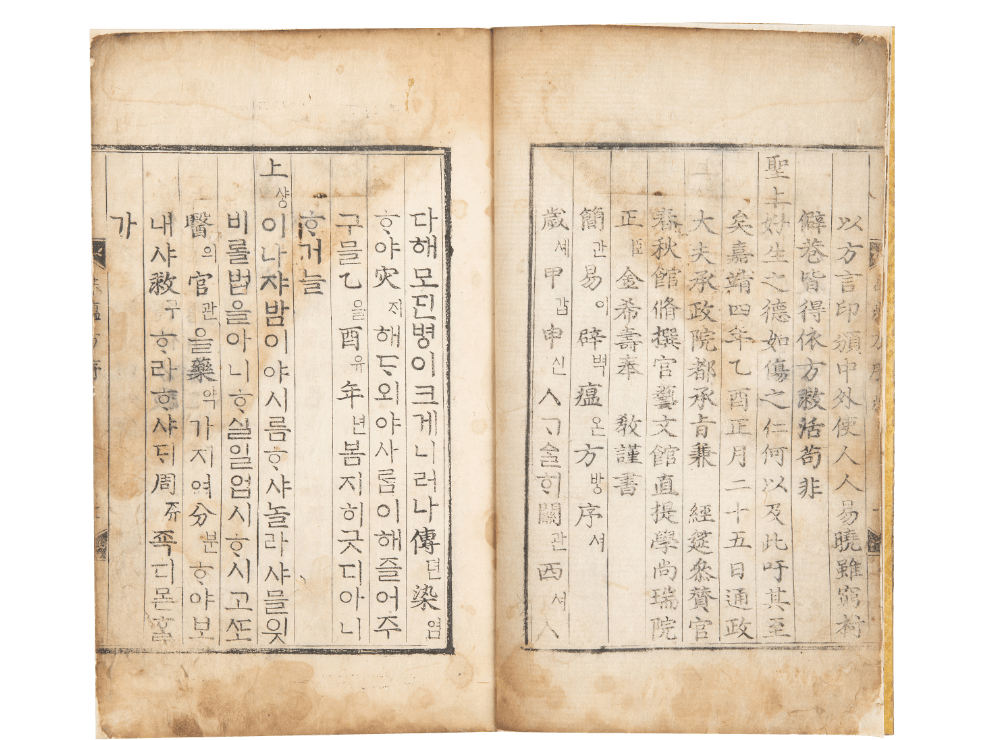 以方言印頒中外使人人易曉雖窮村
僻巷皆得依方救活苟非
聖上好生之德如傷之仁何以及此吁其至
矣嘉靖四年乙酉正月二十五日通政
大夫承政院都承旨兼 經筵參贊官
春秋館脩撰官藝文館直提學尚瑞院
正臣金希壽奉 敎謹書
簡간易이辟벽瘟온方방序셔
歲셰甲갑申신ㅅᄀᆞᅀᆞᆯᄒᆡ關관西셔ㅅ
다해모딘병이크게니러나傳뎐染염
ᄒᆞ야灾ᄌᆡ해ᄃᆞ외야사ᄅᆞᆷ이해즐어주
구믈乙을酉유年년봄지히긋디아니
ᄒᆞ거늘
上샹이나쟈밤이야시름ᄒᆞ샤놀라샤믈읫
비롤법을아니ᄒᆞ실일업시ᄒᆞ시고ᄯᅩ
醫의官관을藥약가지여分분ᄒᆞ야보
내샤救구ᄒᆞ라ᄒᆞ샤ᄃᆡ周쥬죡디몯ᄒᆞᆯ
가